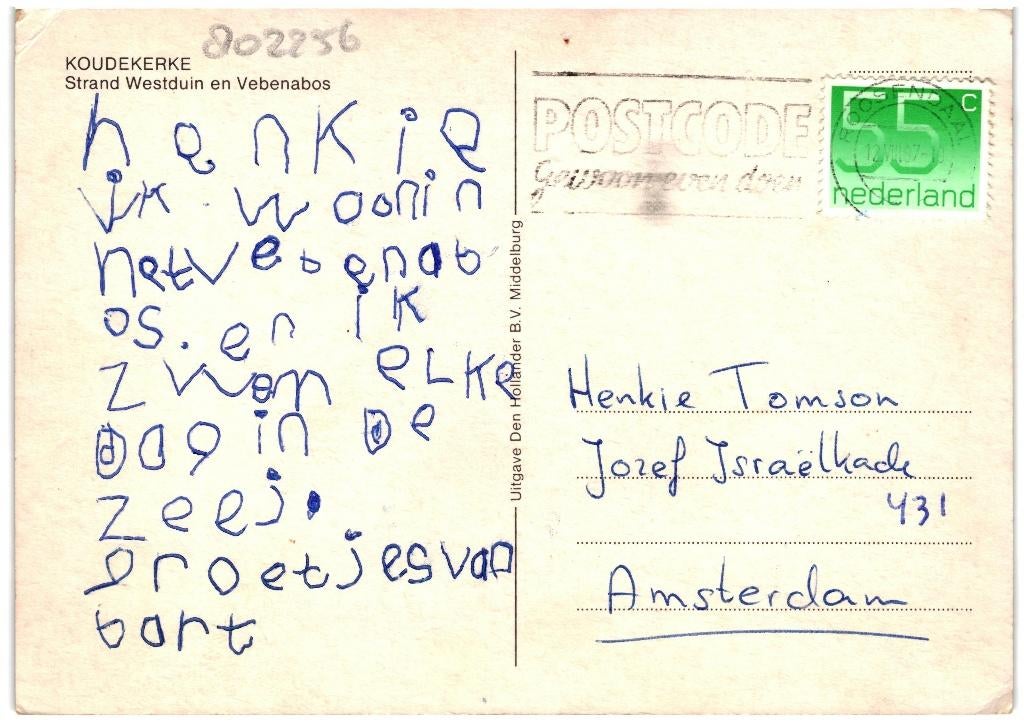 802256
KOUDEKERKE
Strand Westduin en Vebenabos
henkie
ik woon in
het vebenab
os. en ik
zwem elke
dag in de
zee.
groetjes van
bart
Uitgave Den Hollander B.V. Middelburg
POSTCODE
gewoon even doen
ROOSENDAAL
55 c
nederland
Henkie Tomson
Jozef Israëlkade
431
Amsterdam